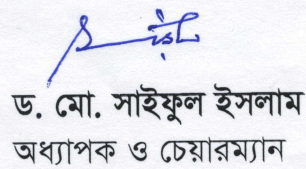 ড. মো. সাইফুল ইসলাম
অধ্যাপক ও চেয়ারম্যান